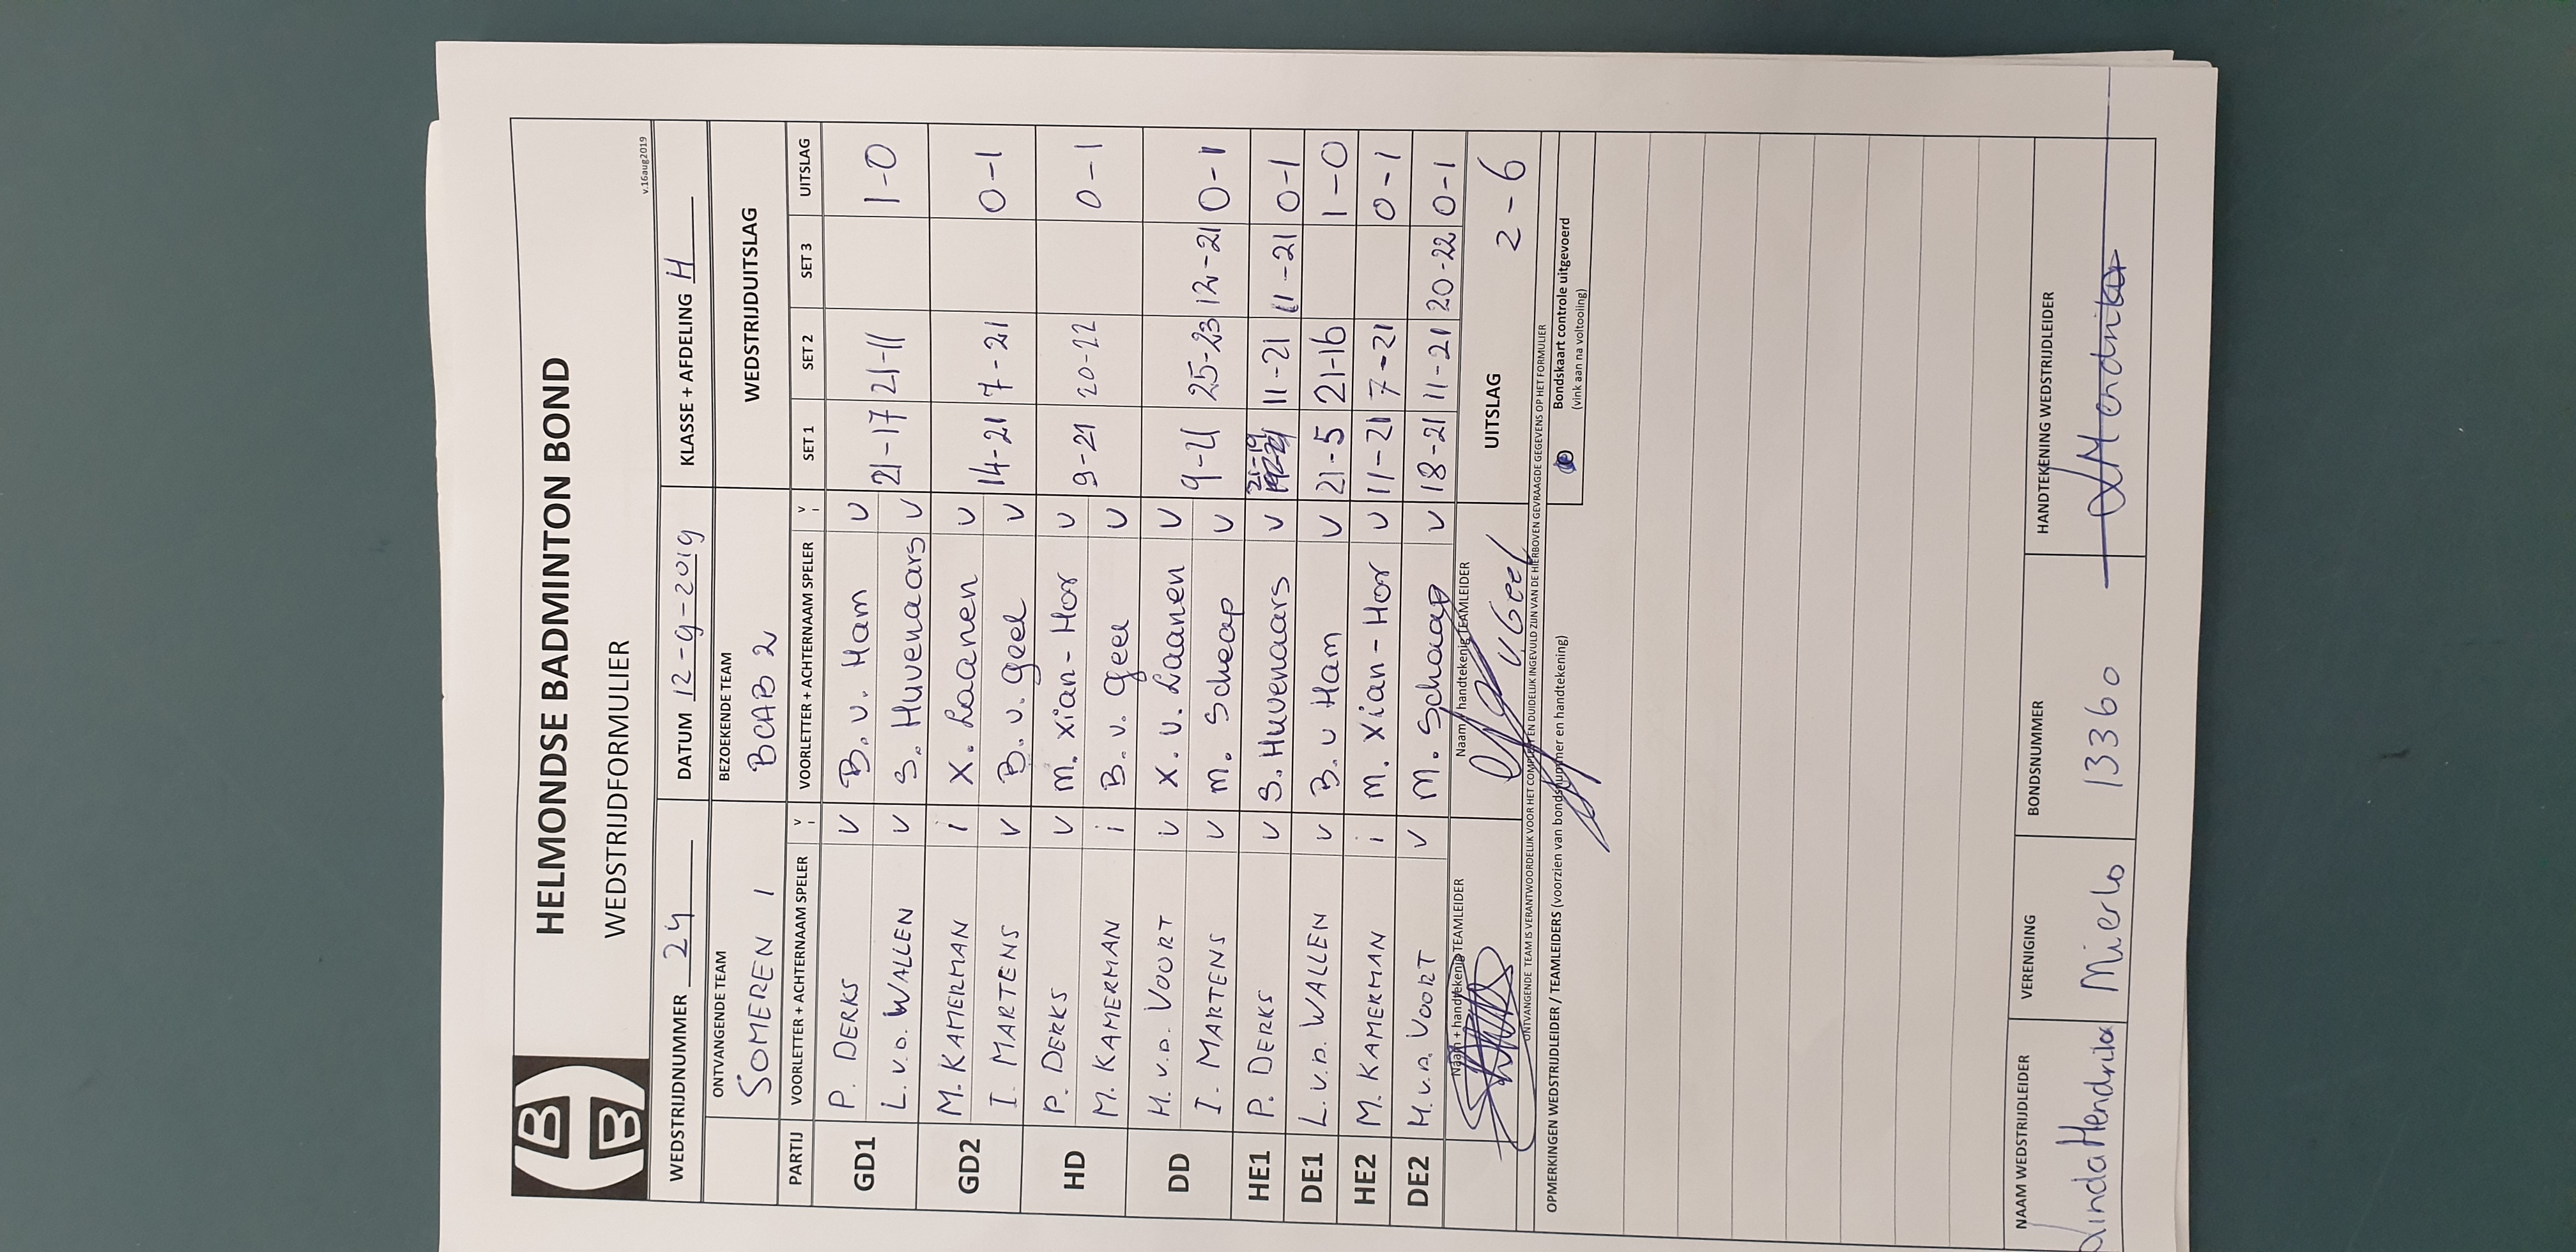 HELMONDSE BADMINTON BOND
WEDSTRIJDFORMULIER
v.16aug2019
WEDSTRIJDNUMMER 24 DATUM 12-9-2019 KLASSE + AFDELING H
ONTVANGENDE TEAM BEZOEKENDE TEAM WEDSTRIJDUITSLAG
SOMEREN 1 BCAB 2
PARTIJ VOORLETTER + ACHTERNAAM SPELER V I VOORLETTER + ACHTERNAAM SPELER V I SET 1 SET 2 SET 3 UITSLAG
GD1 P. DERKS V B. v. Ham V
L. v.D. WALLEN V S. Huvenaars V 21-17 21-11 1-0
GD2 M. KAMERMAN i X. Laanen V
I. MARTENS V B. v. Geel V 14-21 7-21 0-1
HD P. DERKS V M. Xian-Hor V
M. KAMERMAN i B. v. Geel V 9-21 20-22 0-1
DD H. v.D. VOORT V X. v. Laanen V
I. MARTENS V M. Schaap V 9-21 25-23 12-21 0-1
HE1 P. DERKS V S. Huvenaars V 21-19 11-21 11-21 0-1
DE1 L. v.D. WALLEN V B. v Ham V 21-5 21-16 1-0
HE2 M. KAMERMAN i M. Xian-Hor V 11-21 7-21 0-1
DE2 H. v.D. VOORT V M. Schaap V 18-21 11-21 20-22 0-1
Naam + handtekenig TEAMLEIDER Naam + handtekenig TEAMLEIDER UITSLAG 2-6
v Geel
ONTVANGENDE TEAM IS VERANTWOORDELIJK VOOR HET COMPLEET EN DUIDELIJK INGEVULD ZIJN VAN DE HIERBOVEN GEVRAAGDE GEGEVENS OP HET FORMULIER
OPMERKINGEN WEDSTRIJDLEIDER / TEAMLEIDERS (voorzien van bondsnummer en handtekening)
Bondskaart controle uitgevoerd
(vink aan na voltooiing)
NAAM WEDSTRIJDLEIDER VERENIGING BONDSNUMMER HANDTEKENING WEDSTRIJDLEIDER
Linda Hendrikx Mierlo 13360 LHendrikx